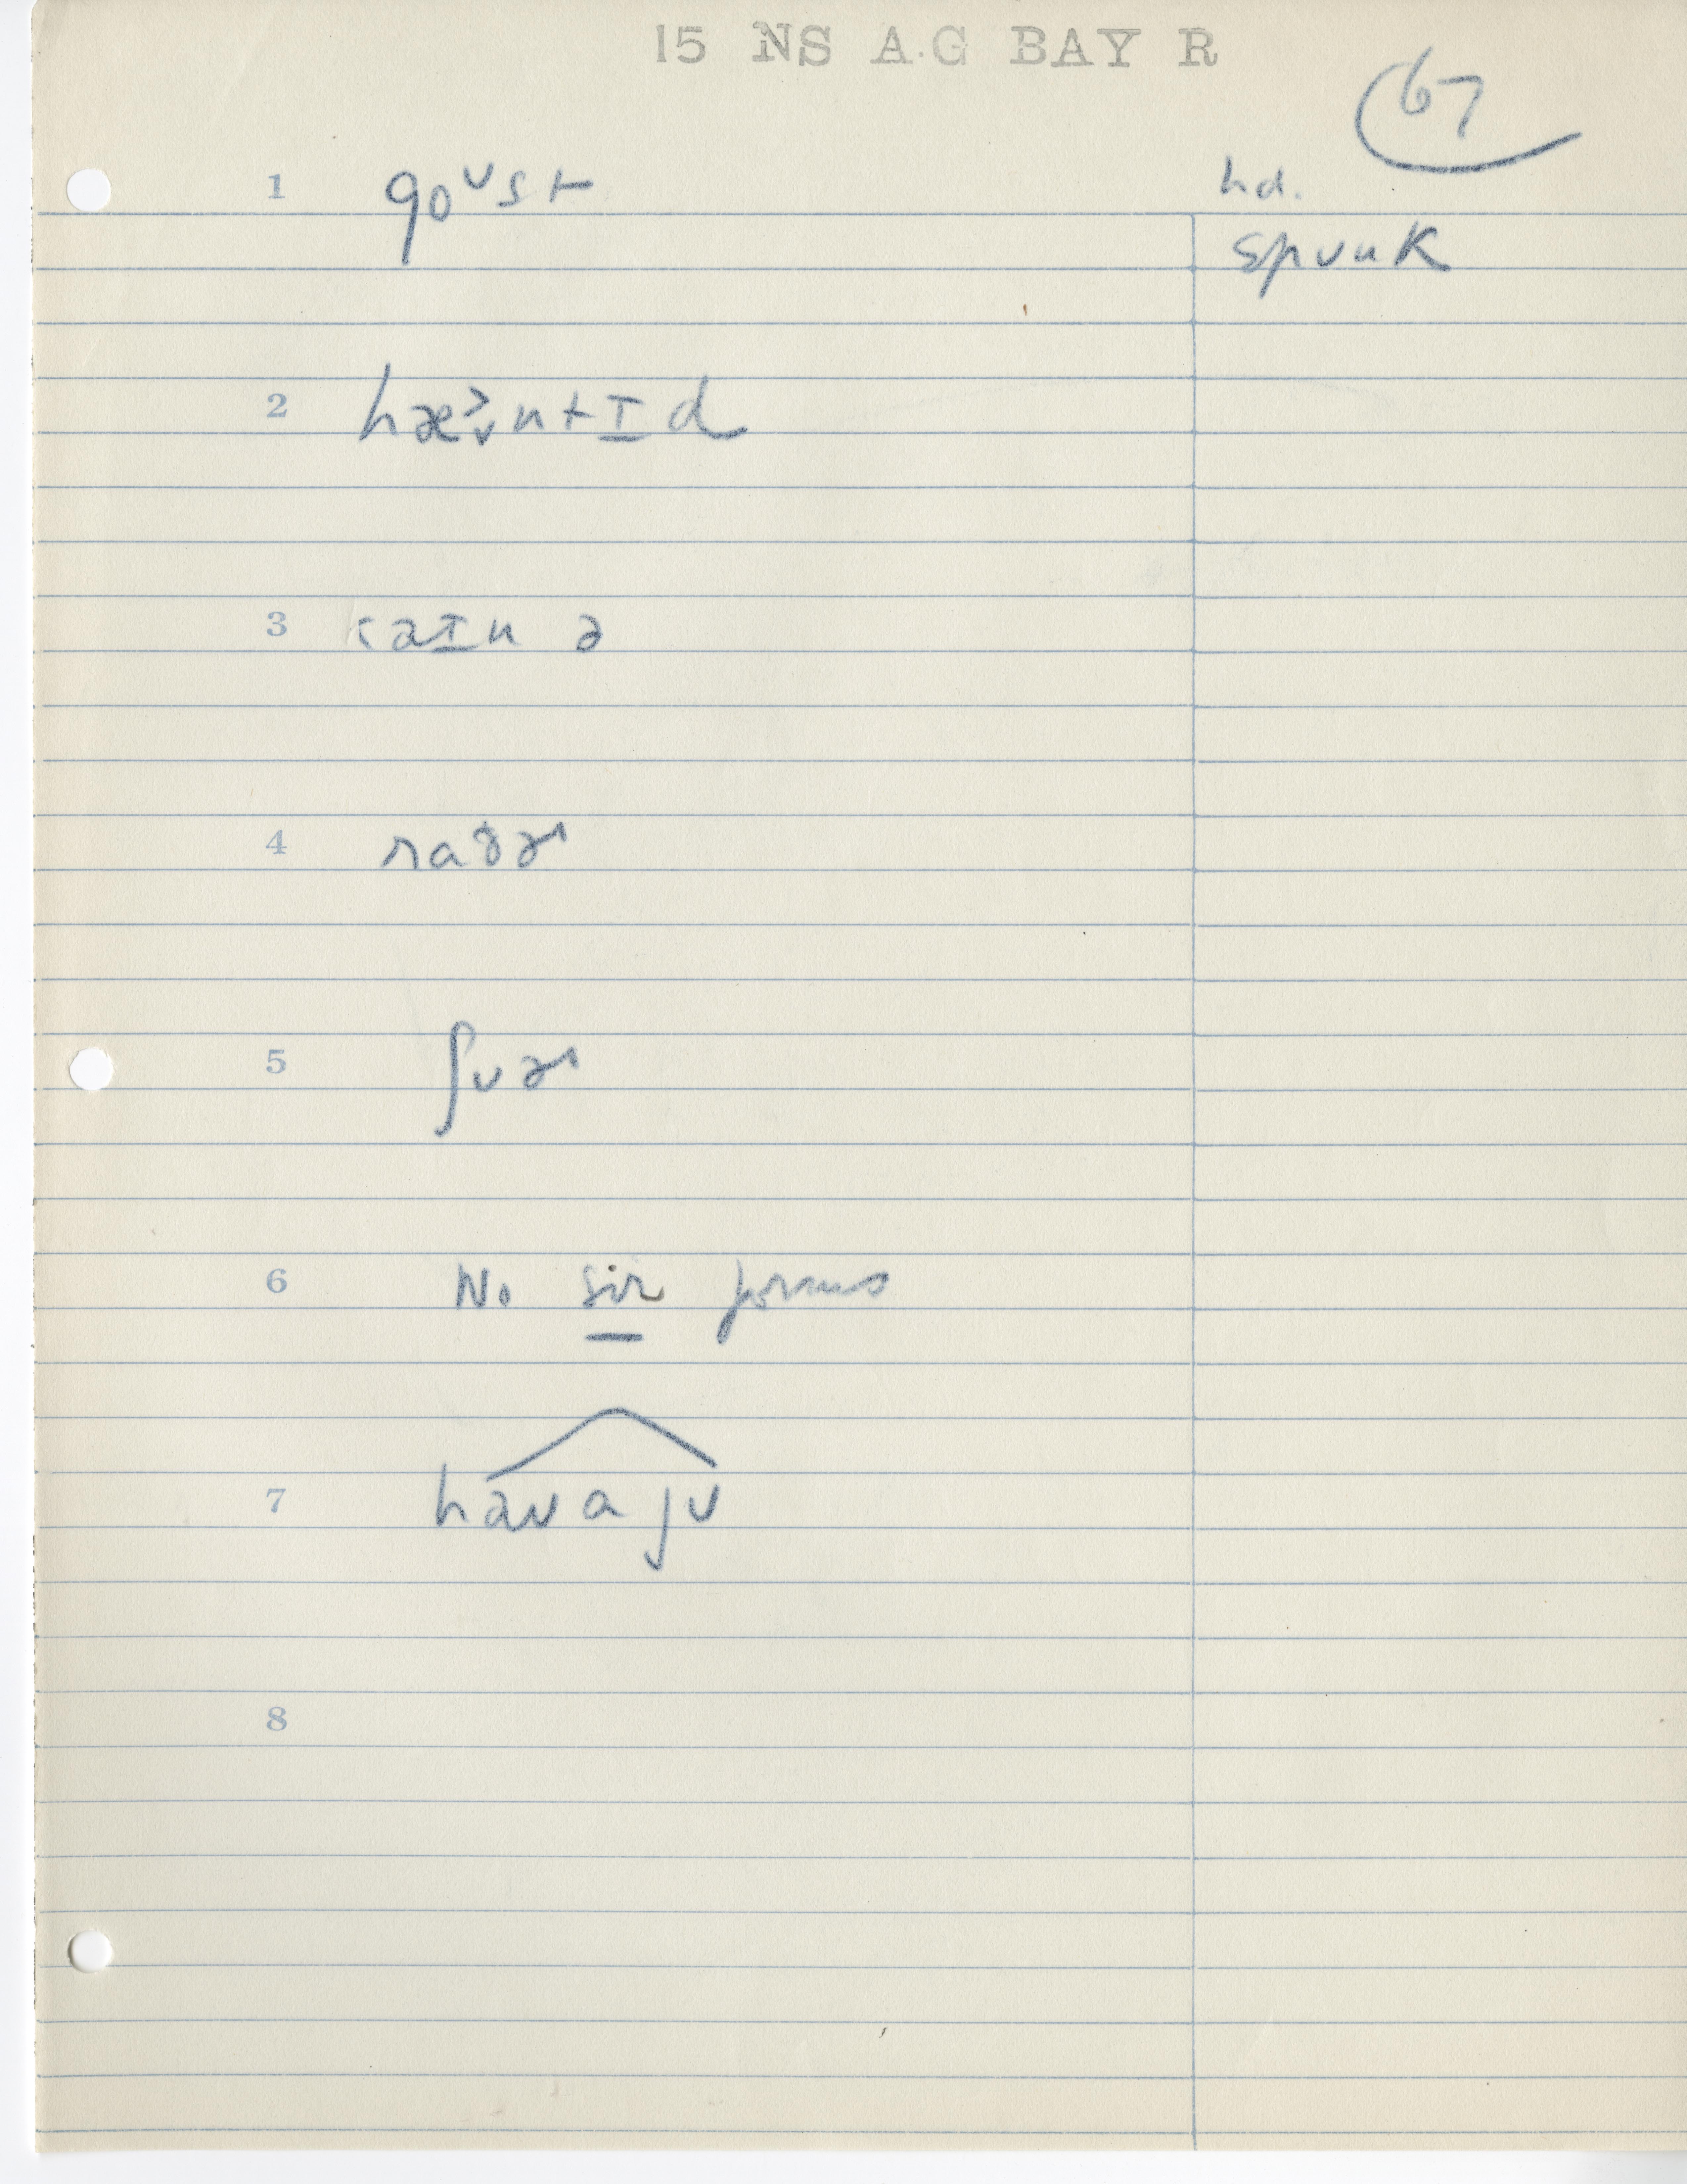 15 NS A.G BAY R
67
1 goᴜst hd.
spuuk
2 hæ̬˃ntɪ̱d
3 kaɪ̱n ə
4 raðɚ
5 ʃʊɚ
6 No sir
7 haʊ a jʊ
8